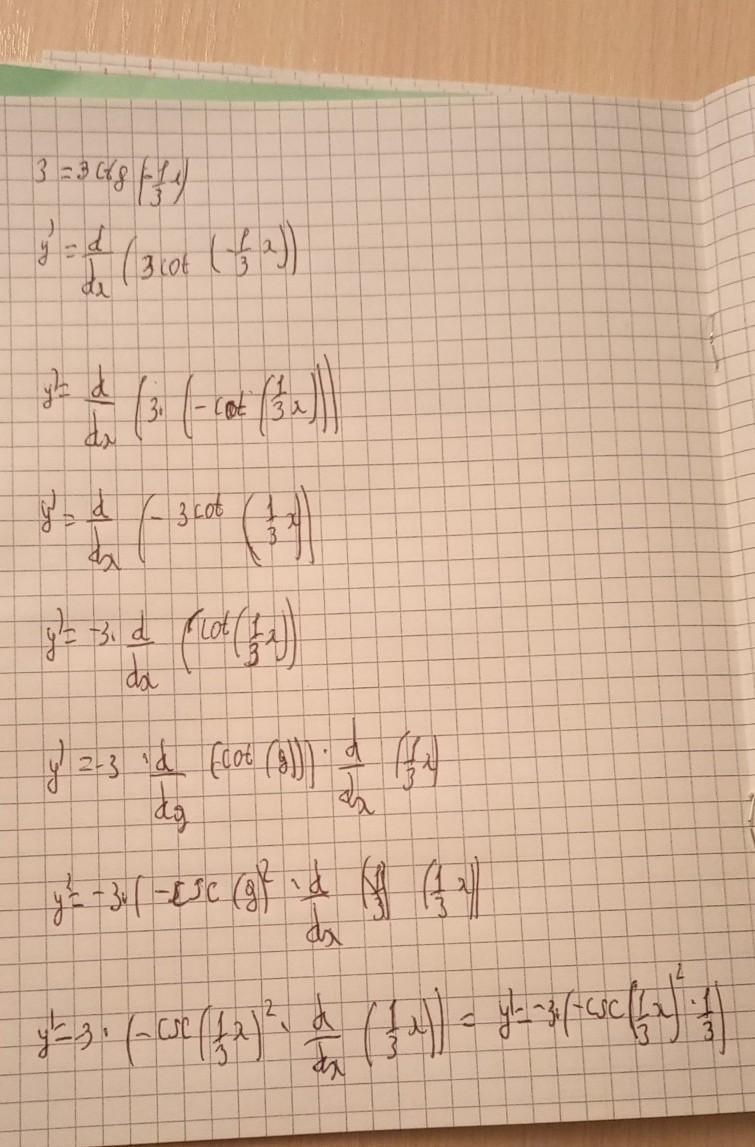 3 = 3 ctg (-1/3 x)
y' = d/dx (3 cot (-1/3 x))
y' = d/dx (3· (-cot (1/3 x)))
y' = d/dx (- 3 cot (1/3 x))
y' = -3· d/dx (cot (1/3 x))
y' = -3 · d/dg (cot (g))) · d/dx (1/3 x)
y' = -3·(-csc (g)² · d/dx (1/3 x))
y' = -3 · (-csc (1/3 x)² · d/dx (1/3 x)) = y' = -3·(-csc (1/3 x)² · 1/3)